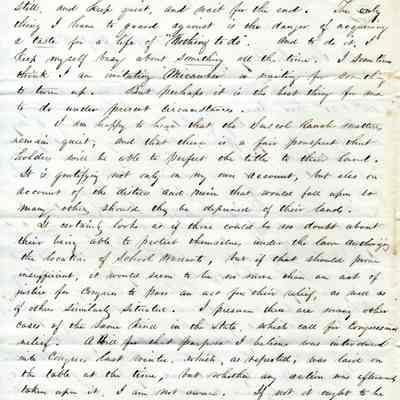 still, and keep quiet, and wait for the end. The only
thing I have to guard against is the danger of acquiring
a taste for a life of "Nothing to do". And to do it, I
keep myself busy about something all the time. I sometimes
think I am imitating Micawber in waiting for something
to turn up. But perhaps it is the best thing for me
to do under present circumstances.
I am happy to hear that the Suscol Ranch matters
remain quiet, and that there is a fair prospect that
holders will be able to perfect the title to their land.
It is gratifying not only on my own account, but also on
account of the distress and ruin that would fall upon so
many others should they be deprived of their lands.
It certainly looks as if there could be no doubt about
their being able to protect themselves under the law authorizing
the location of School Warrants, but if that should prove
insufficient, it would seem to be no more than an act of
justice for Congress to pass an act for their relief, as well as
of others similarly situated. I presume there are many other
cases of the same kind in the State, which call for Congressional
relief. A Bill for that purpose I believe was introduced
into Congress last winter, which, as reported, was laid on
the table at the time, but whether any action was afterwards
taken upon it, I am not aware. If not it ought to be